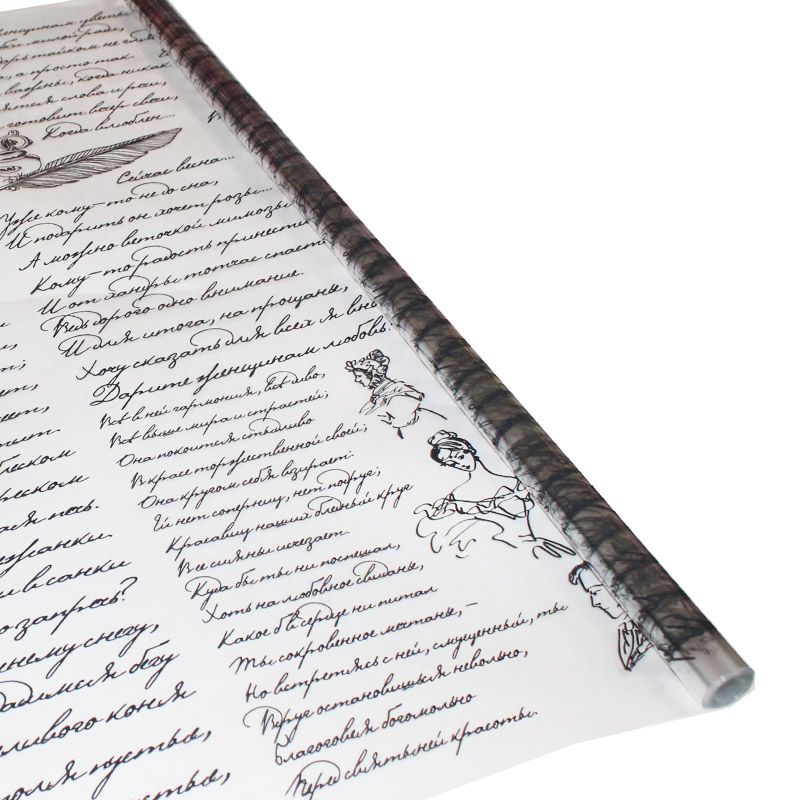 женщинам цветы
милой ради,
тайком не глядя
а просто так
важны, когда никак
слова и речи,
готовит вечер свечи,
Когда влюблен...
Сейчас весна...
Уже кому-то не до сна,
И подарить он хочет розы...
А можно веточкой мимозы
Кому-то радость принести
И от хандры тотчас спасти
Ведь дорого одно внимание.
И для итога, на прощанье,
Хочу сказать для всех я вновь
Дарите женщинам любовь!
Всё в ней гармония, всё диво,
Всё выше мира и страстей;
Она покоится стыдливо
В красе торжественной своей;
Она кругом себя взирает:
Ей нет соперниц, нет подруг;
Красавиц наших бледный круг
В её сияньи исчезает.
Куда бы ты ни поспешал,
Хоть на любовное свиданье,
Какое б в сердце ни питал
Ты сокровенное мечтанье, –
Но встретясь с ней, смущенный, ты
Вдруг остановишься невольно,
Благоговея богомольно
Перед святыней красоты.
блеском
печь.
в санки
запречь?
снегу,
бегу
коня
пустые,